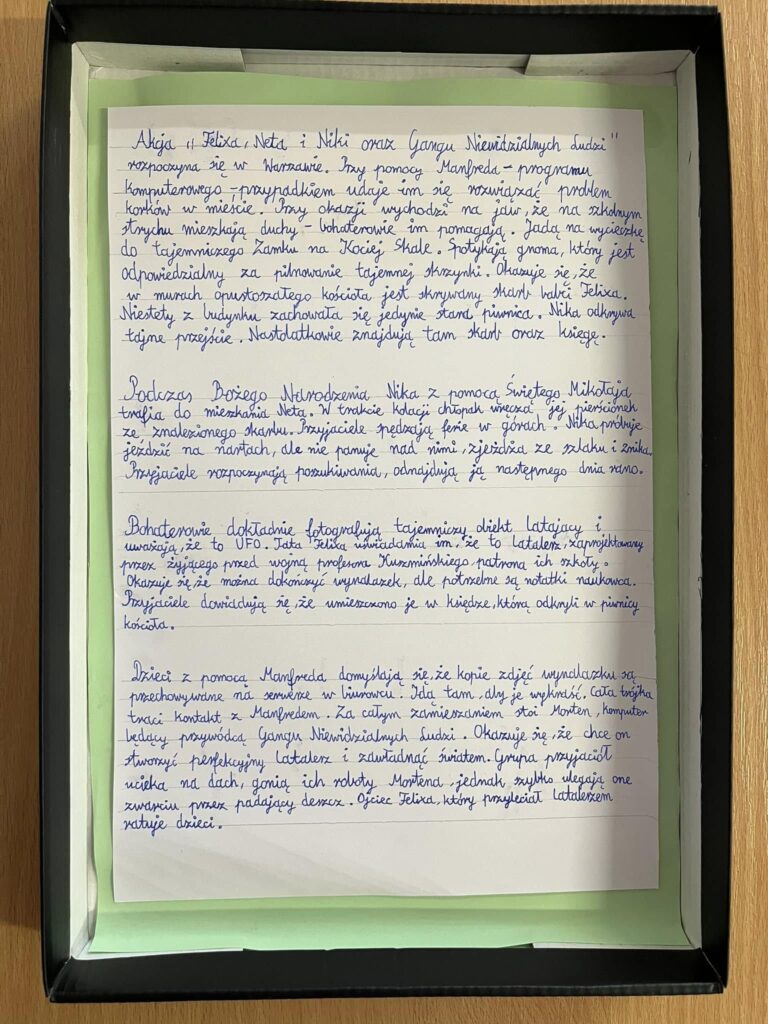 Akcja „Felixa, Neta i Niki oraz Gangu Niewidzialnych Ludzi"
rozpoczyna się w Warszawie. Przy pomocy Manfreda - programu
komputerowego - przypadkiem udaje im się rozwiązać problem
korków w mieście. Przy okazji wychodzi na jaw, że na szkolnym
strychu mieszkają duchy - bohaterowie im pomagają. Jadą na wycieczkę
do tajemniczego Zamku na Kociej Skale. Spotykają gnoma, który jest
odpowiedzialny za pilnowanie tajemnej skrzynki. Okazuje się, że
w murach opustoszałego kościoła jest skrywany skarb babci Felixa.
Niestety z budynku zachowała się jedynie stara piwnica. Nika odkrywa
tajne przejście. Nastolatkowie znajdują tam skarb oraz księgę.
Podczas Bożego Narodzenia Nika z pomocą Świętego Mikołaja
trafia do mieszkania Neta. W trakcie kolacji chłopak wręcza jej pierścionek
ze znalezionego skarbu. Przyjaciele spędzają ferie w górach. Nika próbuje
jeździć na nartach, ale nie panuje nad nimi, zjeżdża ze szlaku i znika.
Przyjaciele rozpoczynają poszukiwania, odnajdują ją następnego dnia rano.
Bohaterowie dokładnie fotografują tajemniczy obiekt latający i
uważają, że to UFO. Tata Felixa uświadamia im, że to Latalerz, zaprojektowany
przez żyjącego przed wojną profesora Kuszmińskiego - patrona ich szkoły.
Okazuje się, że można dokończyć wynalazek, ale potrzebne są notatki naukowca.
Przyjaciele dowiadują się, że umieszczono je w księdze, którą odkryli w piwnicy
kościoła.
Dzieci z pomocą Manfreda domyślają się, że kopie zdjęć wynalazku są
przechowywane na serwerze w biurowcu. Idą tam, aby je wykraść. Cała trójka
traci kontakt z Manfredem. Za całym zamieszaniem stoi Morten, komputer
będący przywódcą Gangu Niewidzialnych Ludzi. Okazuje się, że chce on
stworzyć perfekcyjny Latalerz i zawładnąć światem. Grupa przyjaciół
ucieka na dach, gonią ich roboty Mortena, jednak szybko ulegają one
zwarciu przez padający deszcz. Ojciec Felixa, który przyleciał Latalerzem
ratuje dzieci.